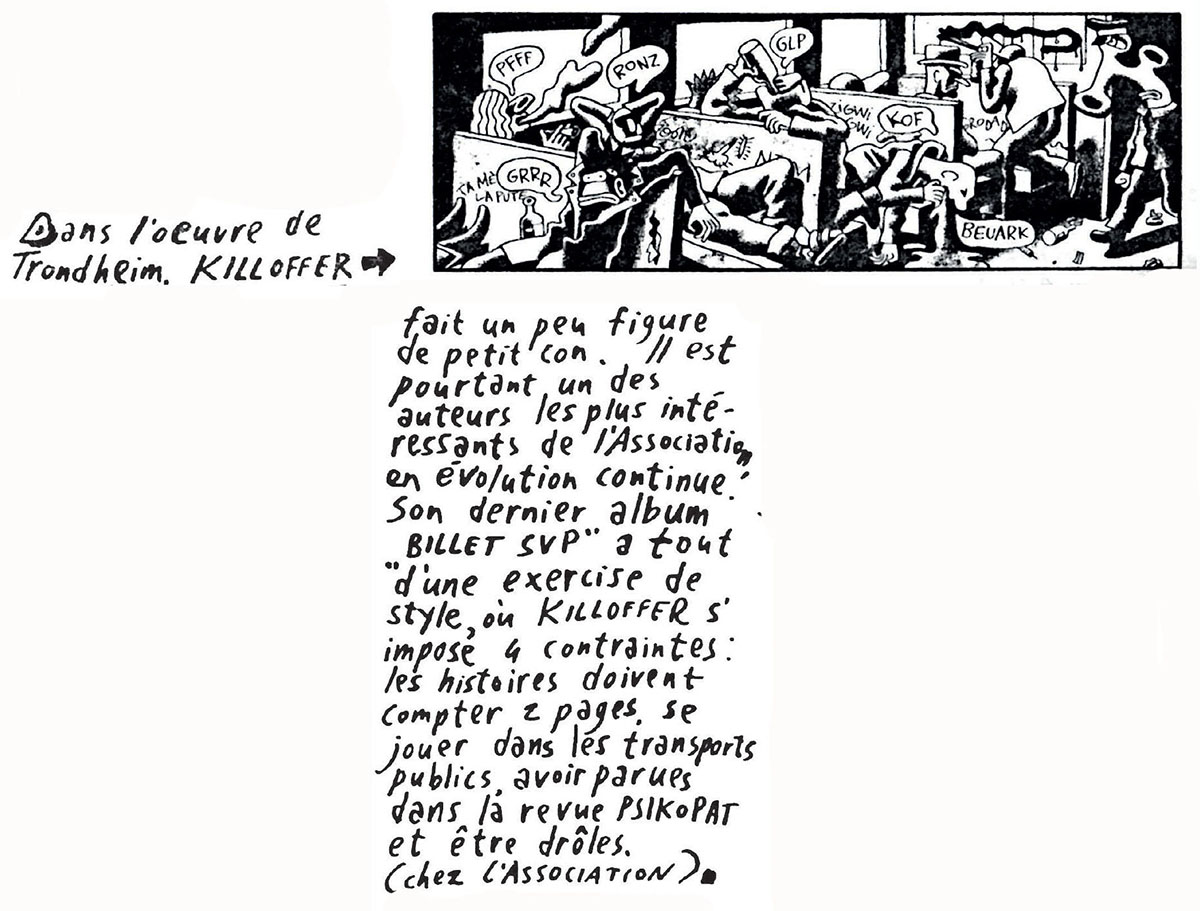 PFFF
RONZ
GLP
ZIGWI
GWI
KOF
GRODAD
TA MÈ
LA PUTE
GRRR
BEUARK
Dans l'oeuvre de
Trondheim, KILLOFFER
fait un peu figure
de petit con. Il est
pourtant un des
auteurs les plus inté-
ressants de l'Association
en évolution continue!
Son dernier album
BILLET SVP" a tout
"d'une exercise de
style, où KILLOFFER s'
impose 4 contraintes:
les histoires doivent
compter 2 pages, se
jouer dans les transports
publics, avoir parues
dans la revue PSIKOPAT
et être drôles.
(chez L'ASSOCIATION).